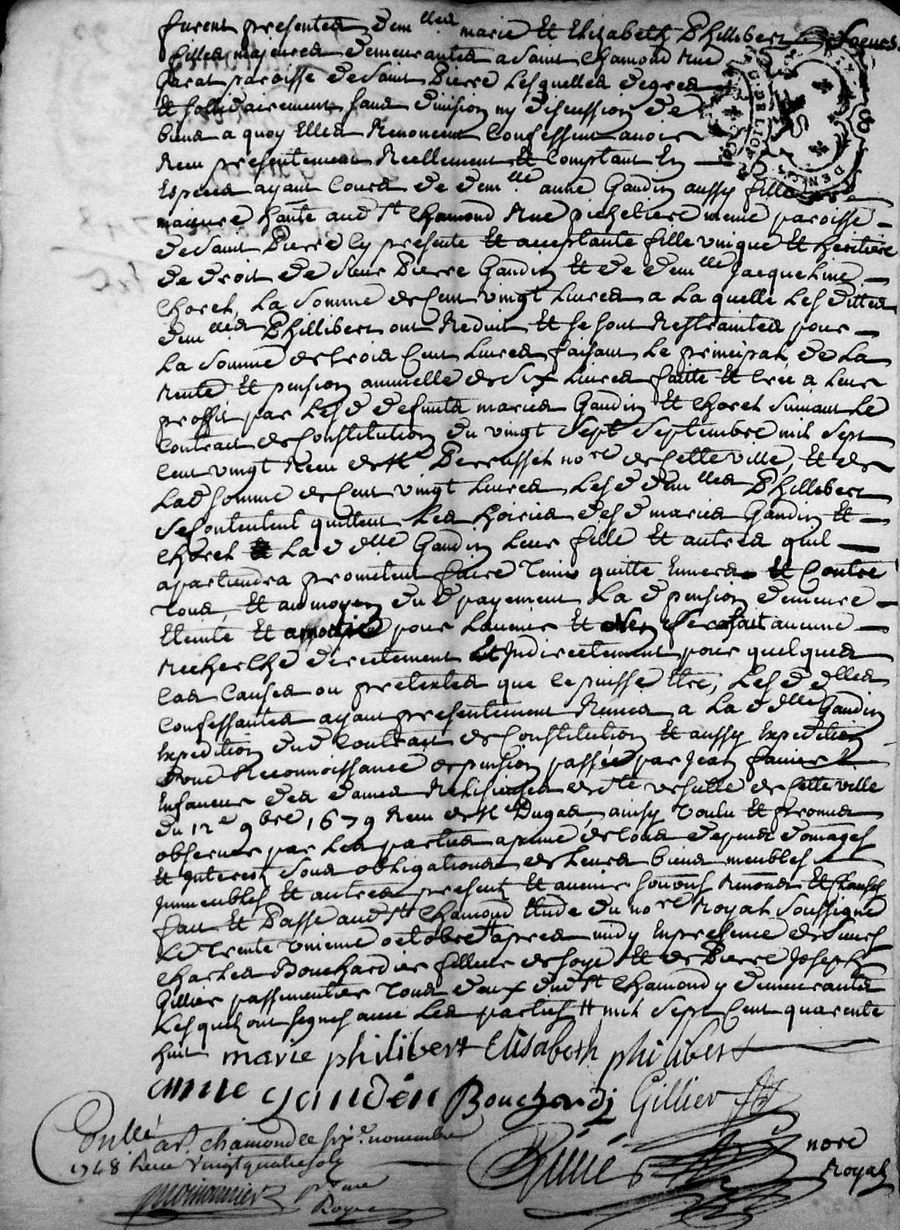 furent presentes dem.lles marie et Elizabeth Phillibert soeurs
filles majeures demeurantes a Saint Chamond Rue
parroisse de Saint Pierre Lesquelles de gres
et sollidairement sans division ny discussion de
biens a quoy Elles Renoncent Confessent avoir
Receu presentement Reellement et Comptant En
Especes ayant Cours de dem.lle anne Gaudin aussy fille
majeure hante aud St Chamond Rue pichetiere meme paroisse
de Saint Pierre Cy presente et acceptante fille unique et heritiere
de droit de Sieur Pierre Gaudin et de dem.lle Jacqueline
Choret, La Somme de Cent vingt Livres a La quelle Les dittes
dem.lles Phillibert ont Reduit et Se sont Restraintes pour
La Somme de trois Cent Livres faisant Le principal de La
Rente et pension annuelle de Six Livres faitte et Crée a Leur
proffit par Lesd defunts mariés Gaudin et Choret Suivant Le
Contract de Constitution du vingt Sept Septembre mil Sept
Cent vingt Receu de M.e Perrusset no.re de Cette ville, et de
Lad Somme de Cent vingt Livres Lesd dem.lles Phillibert
Se Contentent quittent Les hoiries desd mariés Gaudin et
Choret et La d d.lle Gaudin Leur fille et autres quil
apartiendra prometent faire Tenir quitte Envers et Contre
Tous et au moyen du d payement La d pension demeure
Eteinte et amortie pour Lavenir et Nen Sera fait aucune
Recherche directement et Indirectement pour quelques
Cas Causes ou pretextes que Ce puisse Etre, Les d d.lles
Confessantes ayant presentement Remis a La d d.lle Gaudin
Expedition dud Contract de Constitution et aussy Expedition
dune Reconnoissance de pension passée par Jean
des dames Religieuses de S.te de Cette ville
du 12.e 9bre 1679 Receu de M.e Dugas ainsy voulu et promis
observer par Les parties a peine de tous depens domages
et Interest Sous obligations de Leurs biens meubles
Immeubles et autres present et avenir
fait et Passé aud St Chamond Etude du no.re Royal Soussigné
Le Trente unieme octobre apres midy En presence de sieurs
Charles Bouchardier filleur de Soye et de Pierre Joseph
Gillier passementier Tous deux dud St Chamond y demeurants
Lesquels ont Signés avec Les parties mil Sept Cent quarente
huit
marie philibert Elisabeth philibert
anne gaudin Bouchardi Gillier
Conllé
a St. chamond le six.e novembre
1748 Receu vingt quatre sols
no.re
Royal